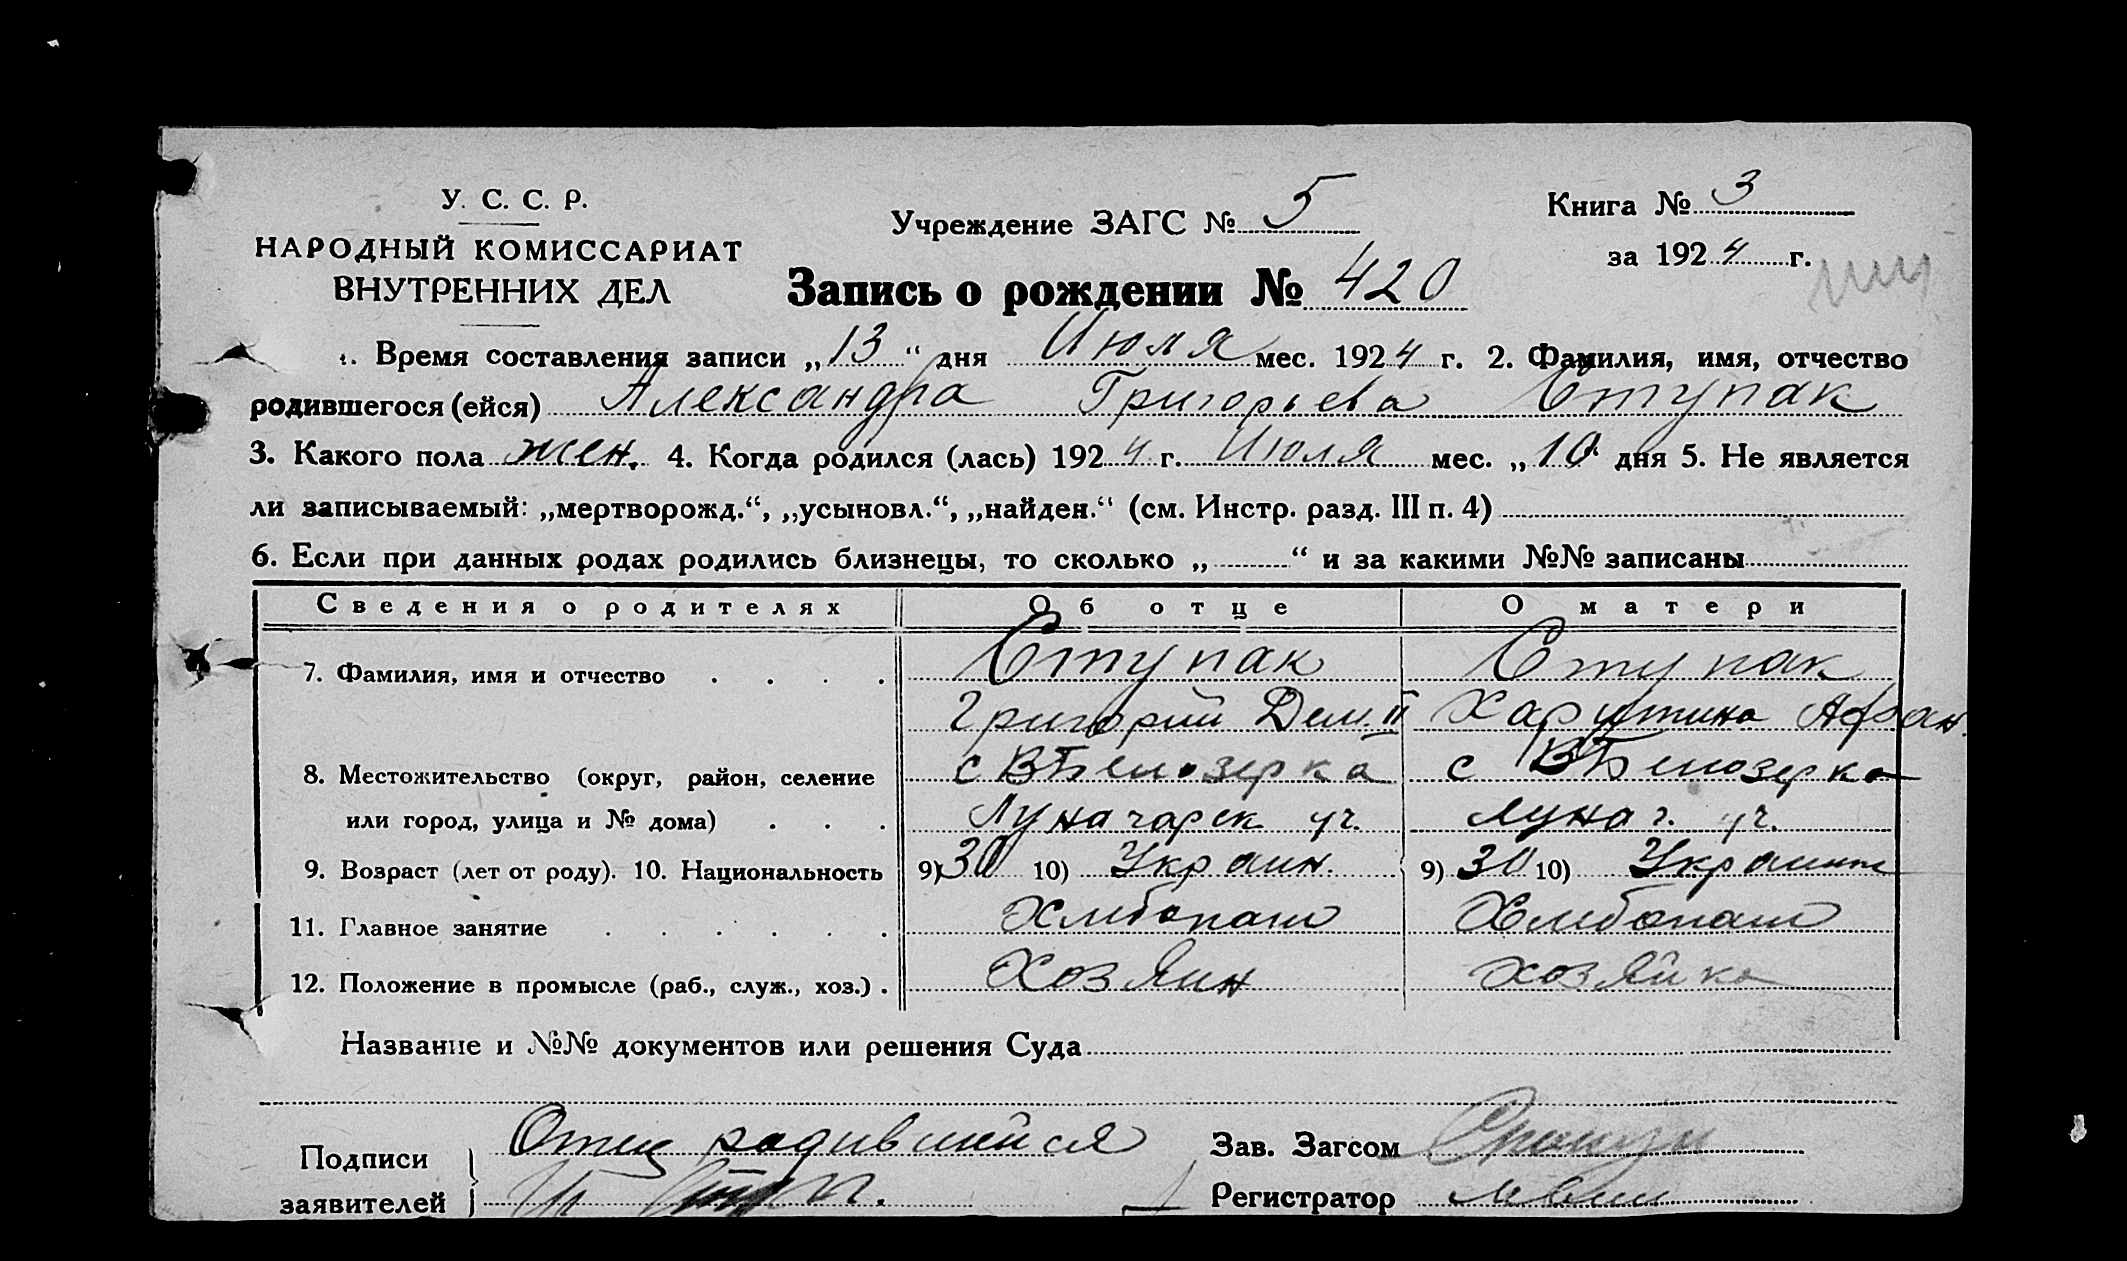 У. С. С. Р.
НАРОДНЫЙ КОМИССАРИАТ
ВНУТРЕННИХ ДЕЛ
Учреждение ЗАГС № 5
Книга № 3
за 1924 г.
Запись о рождении № 420
1. Время составления записи „13“ дня Июля мес. 1924 г. 2. Фамилия, имя, отчество
родившегося (ейся) Александра Григорьева Ступак
3. Какого пола жен. 4. Когда родился (лась) 1924 г. Июля мес. „10“ дня 5. Не является
ли записываемый: „мертворожд.“, „усыновл.“, „найден.“ (см. Инстр. разд. III п. 4)
6. Если при данных родах родились близнецы, то сколько „ “ и за какими №№ записаны
Сведения о родителях Об отце О матери
7. Фамилия, имя и отчество . . . . Ступак Ступак
Григорий Дем. II Харитина Афан.
8. Местожительство (округ, район, селение с ВБелозерка с ВБелозерка
или город, улица и № дома) . . . Луначарск уч. Луна г. уч.
9. Возраст (лет от роду). 10. Национальность 9) 30 10) Украин. 9) 30 10) Украинк
11. Главное занятие . . . . . . Хлибопаш Хлибопаш
12. Положение в промысле (раб., служ., хоз.) . Хозяин хозяйка
Название и №№ документов или решения Суда
Подписи заявителей } Отец родившейся
Зав. Загсом
Регистратор